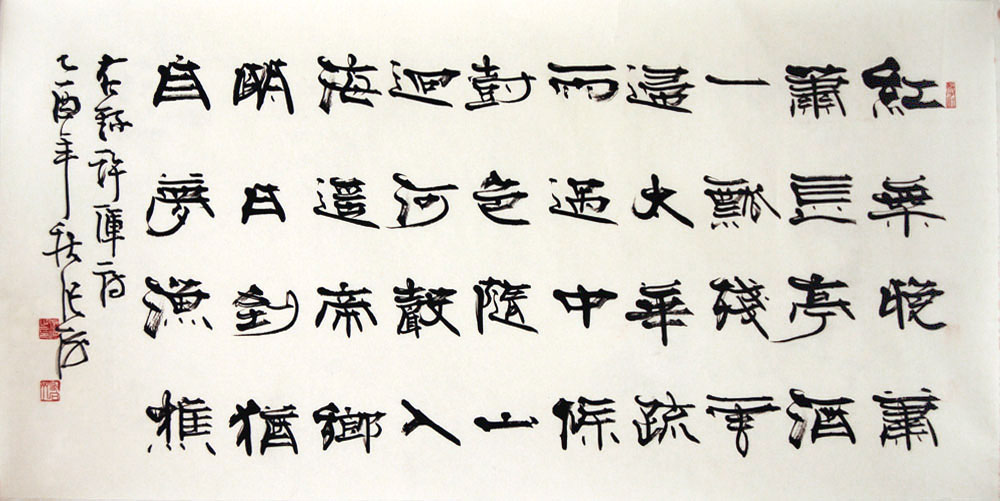 紅葉晚蕭
蕭長亭酒
一瓢殘雲
歸太華疏
雨過中條
樹色隨山
迥河聲入
海遙帝鄉
明日到猶
自夢漁樵
右錄許渾詩
乙酉年秋